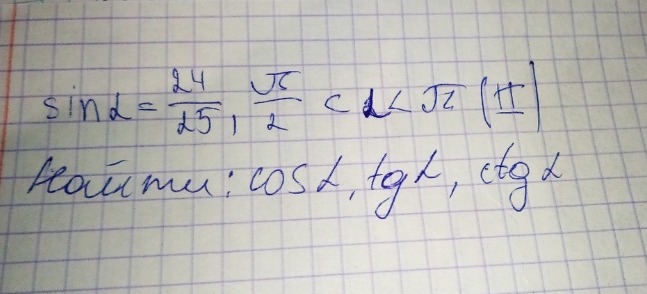 sin α = 24/25, π/2 < α < π (II)
Найти: cos α, tg α, ctg α